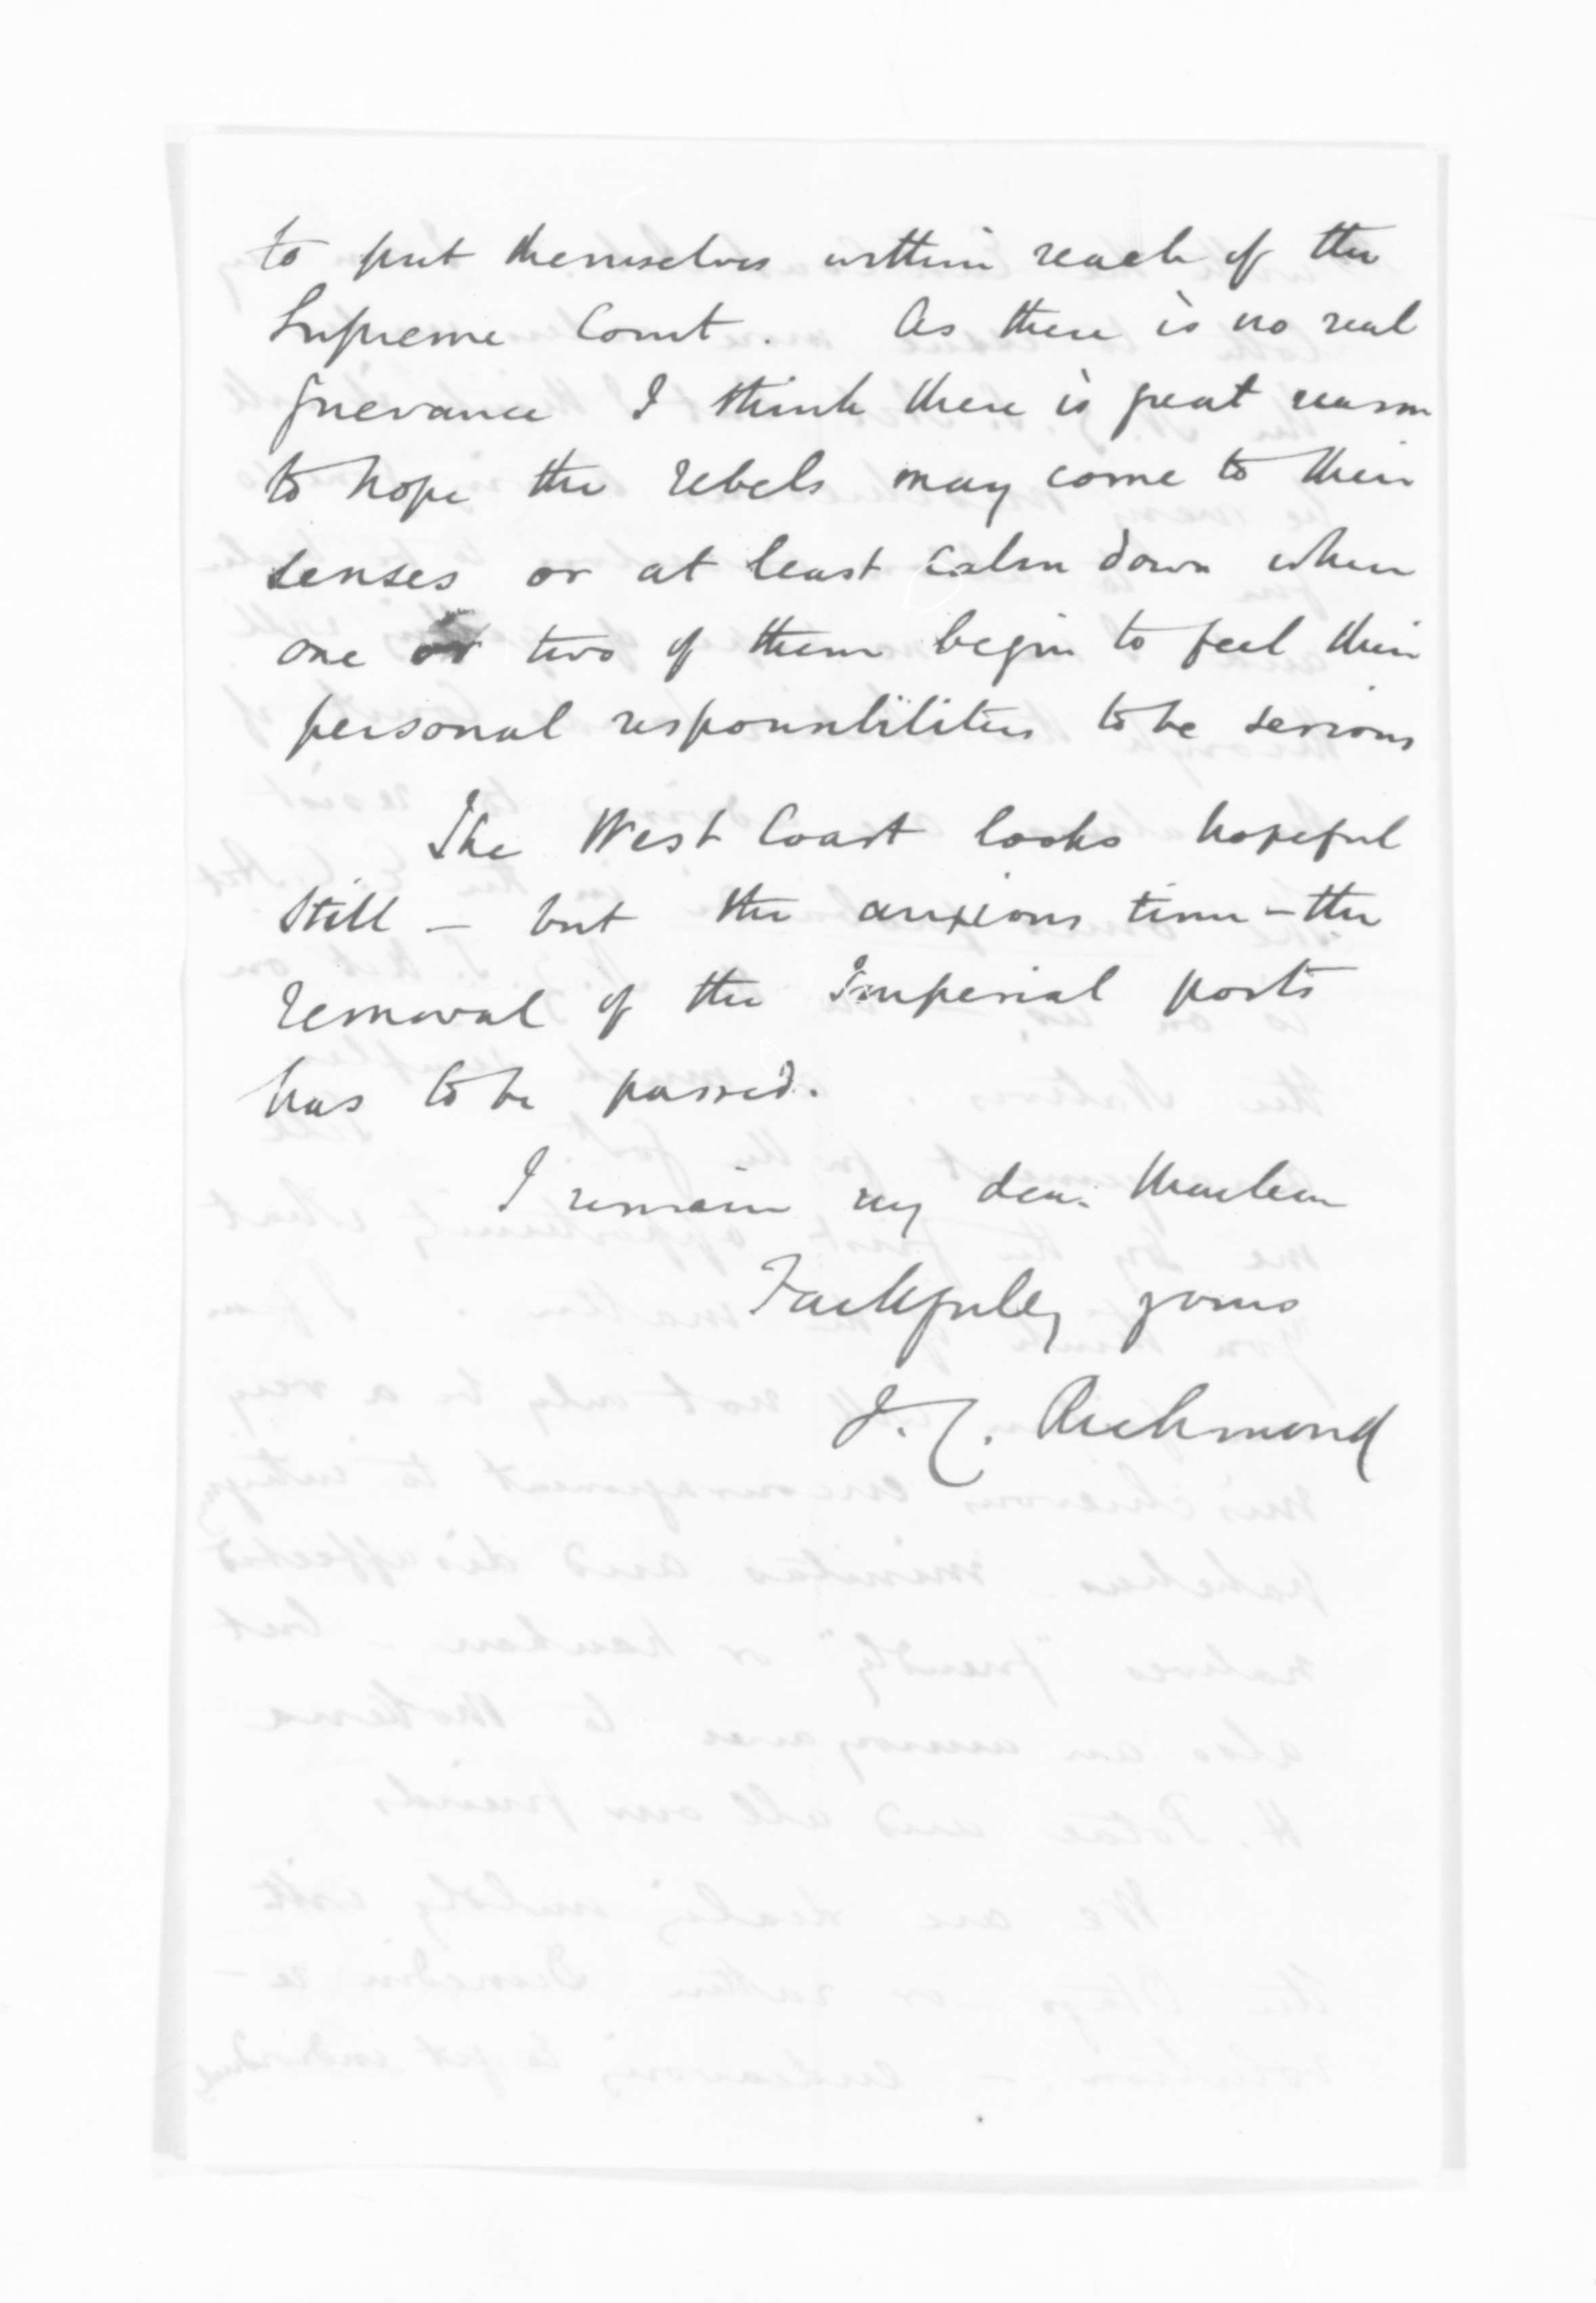 to put themselves within reach of the
Supreme Court. As there is no real
grievance I think there is great reason
to hope the rebels may come to their
senses or at least calm down when
one or two of them begin to feel their
personal responsibilities to be serious
The West Coast looks hopeful
still – but the anxious time – the
removal of the Imperial posts
has to be passed.
I remain my dear Maclean
Faithfully yours
J.C. Richmond